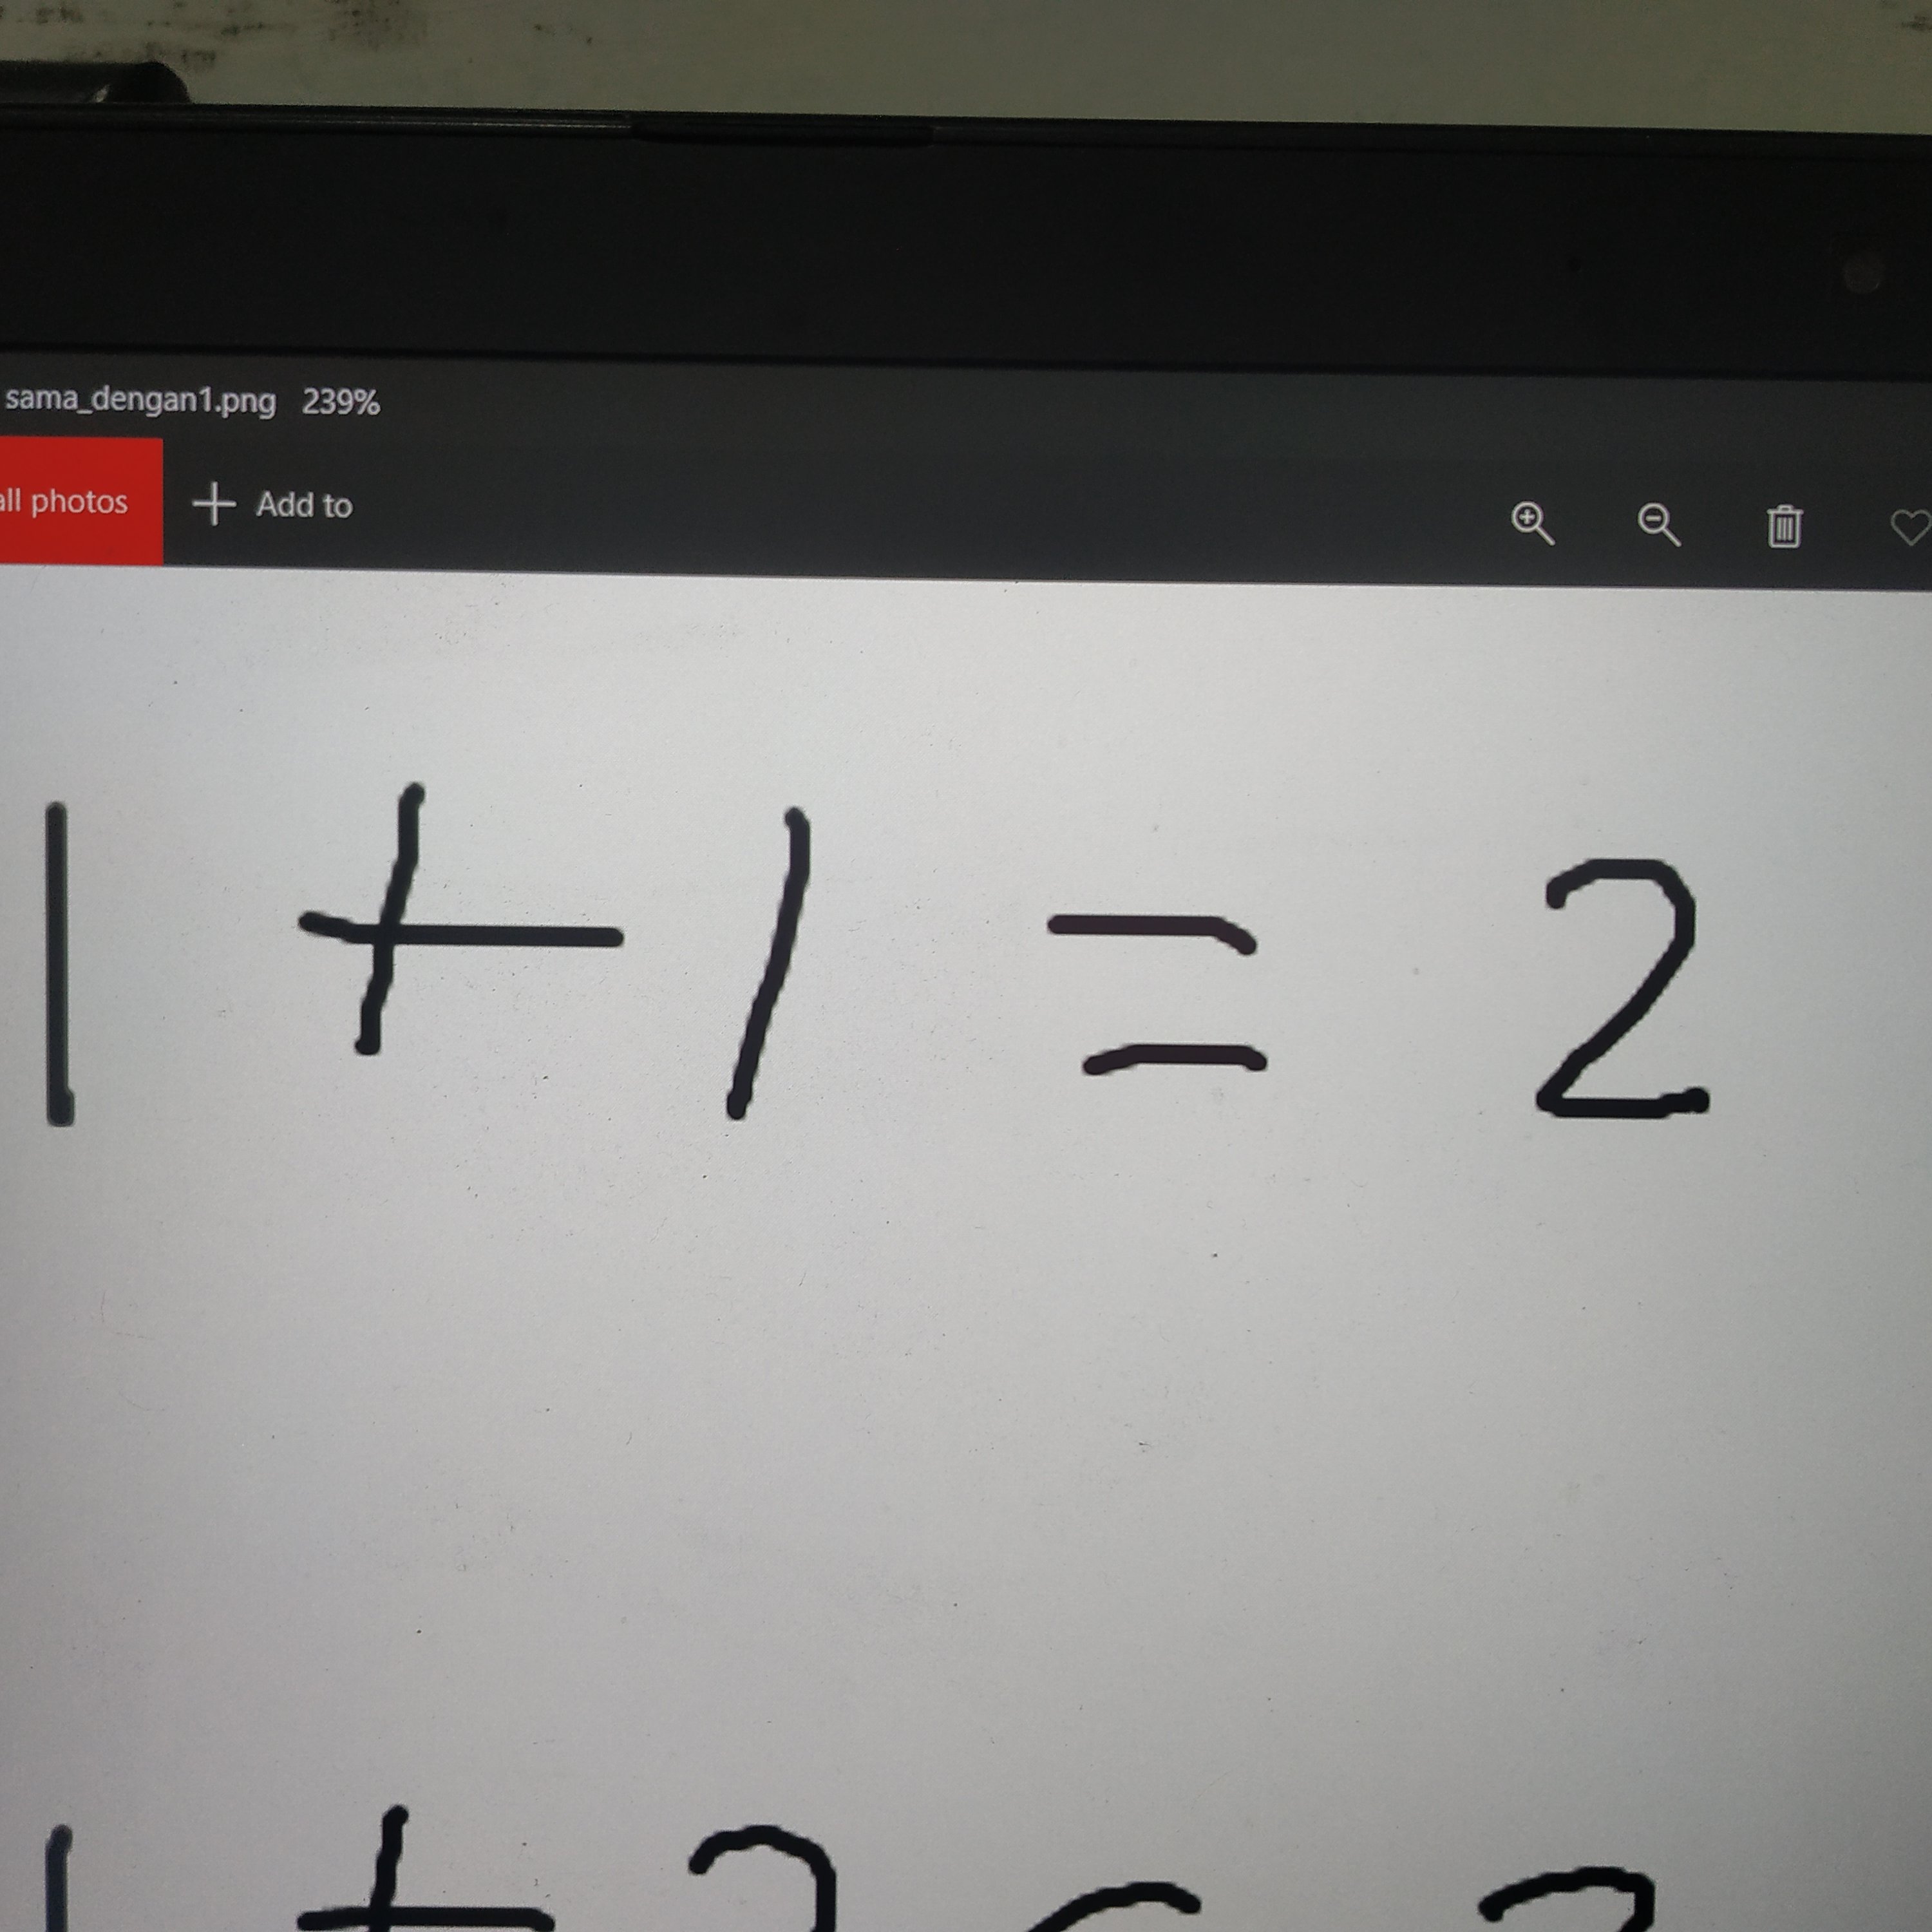 sama_dengan1.png 239%
all photos Add to
1 + 1 = 2
1 +